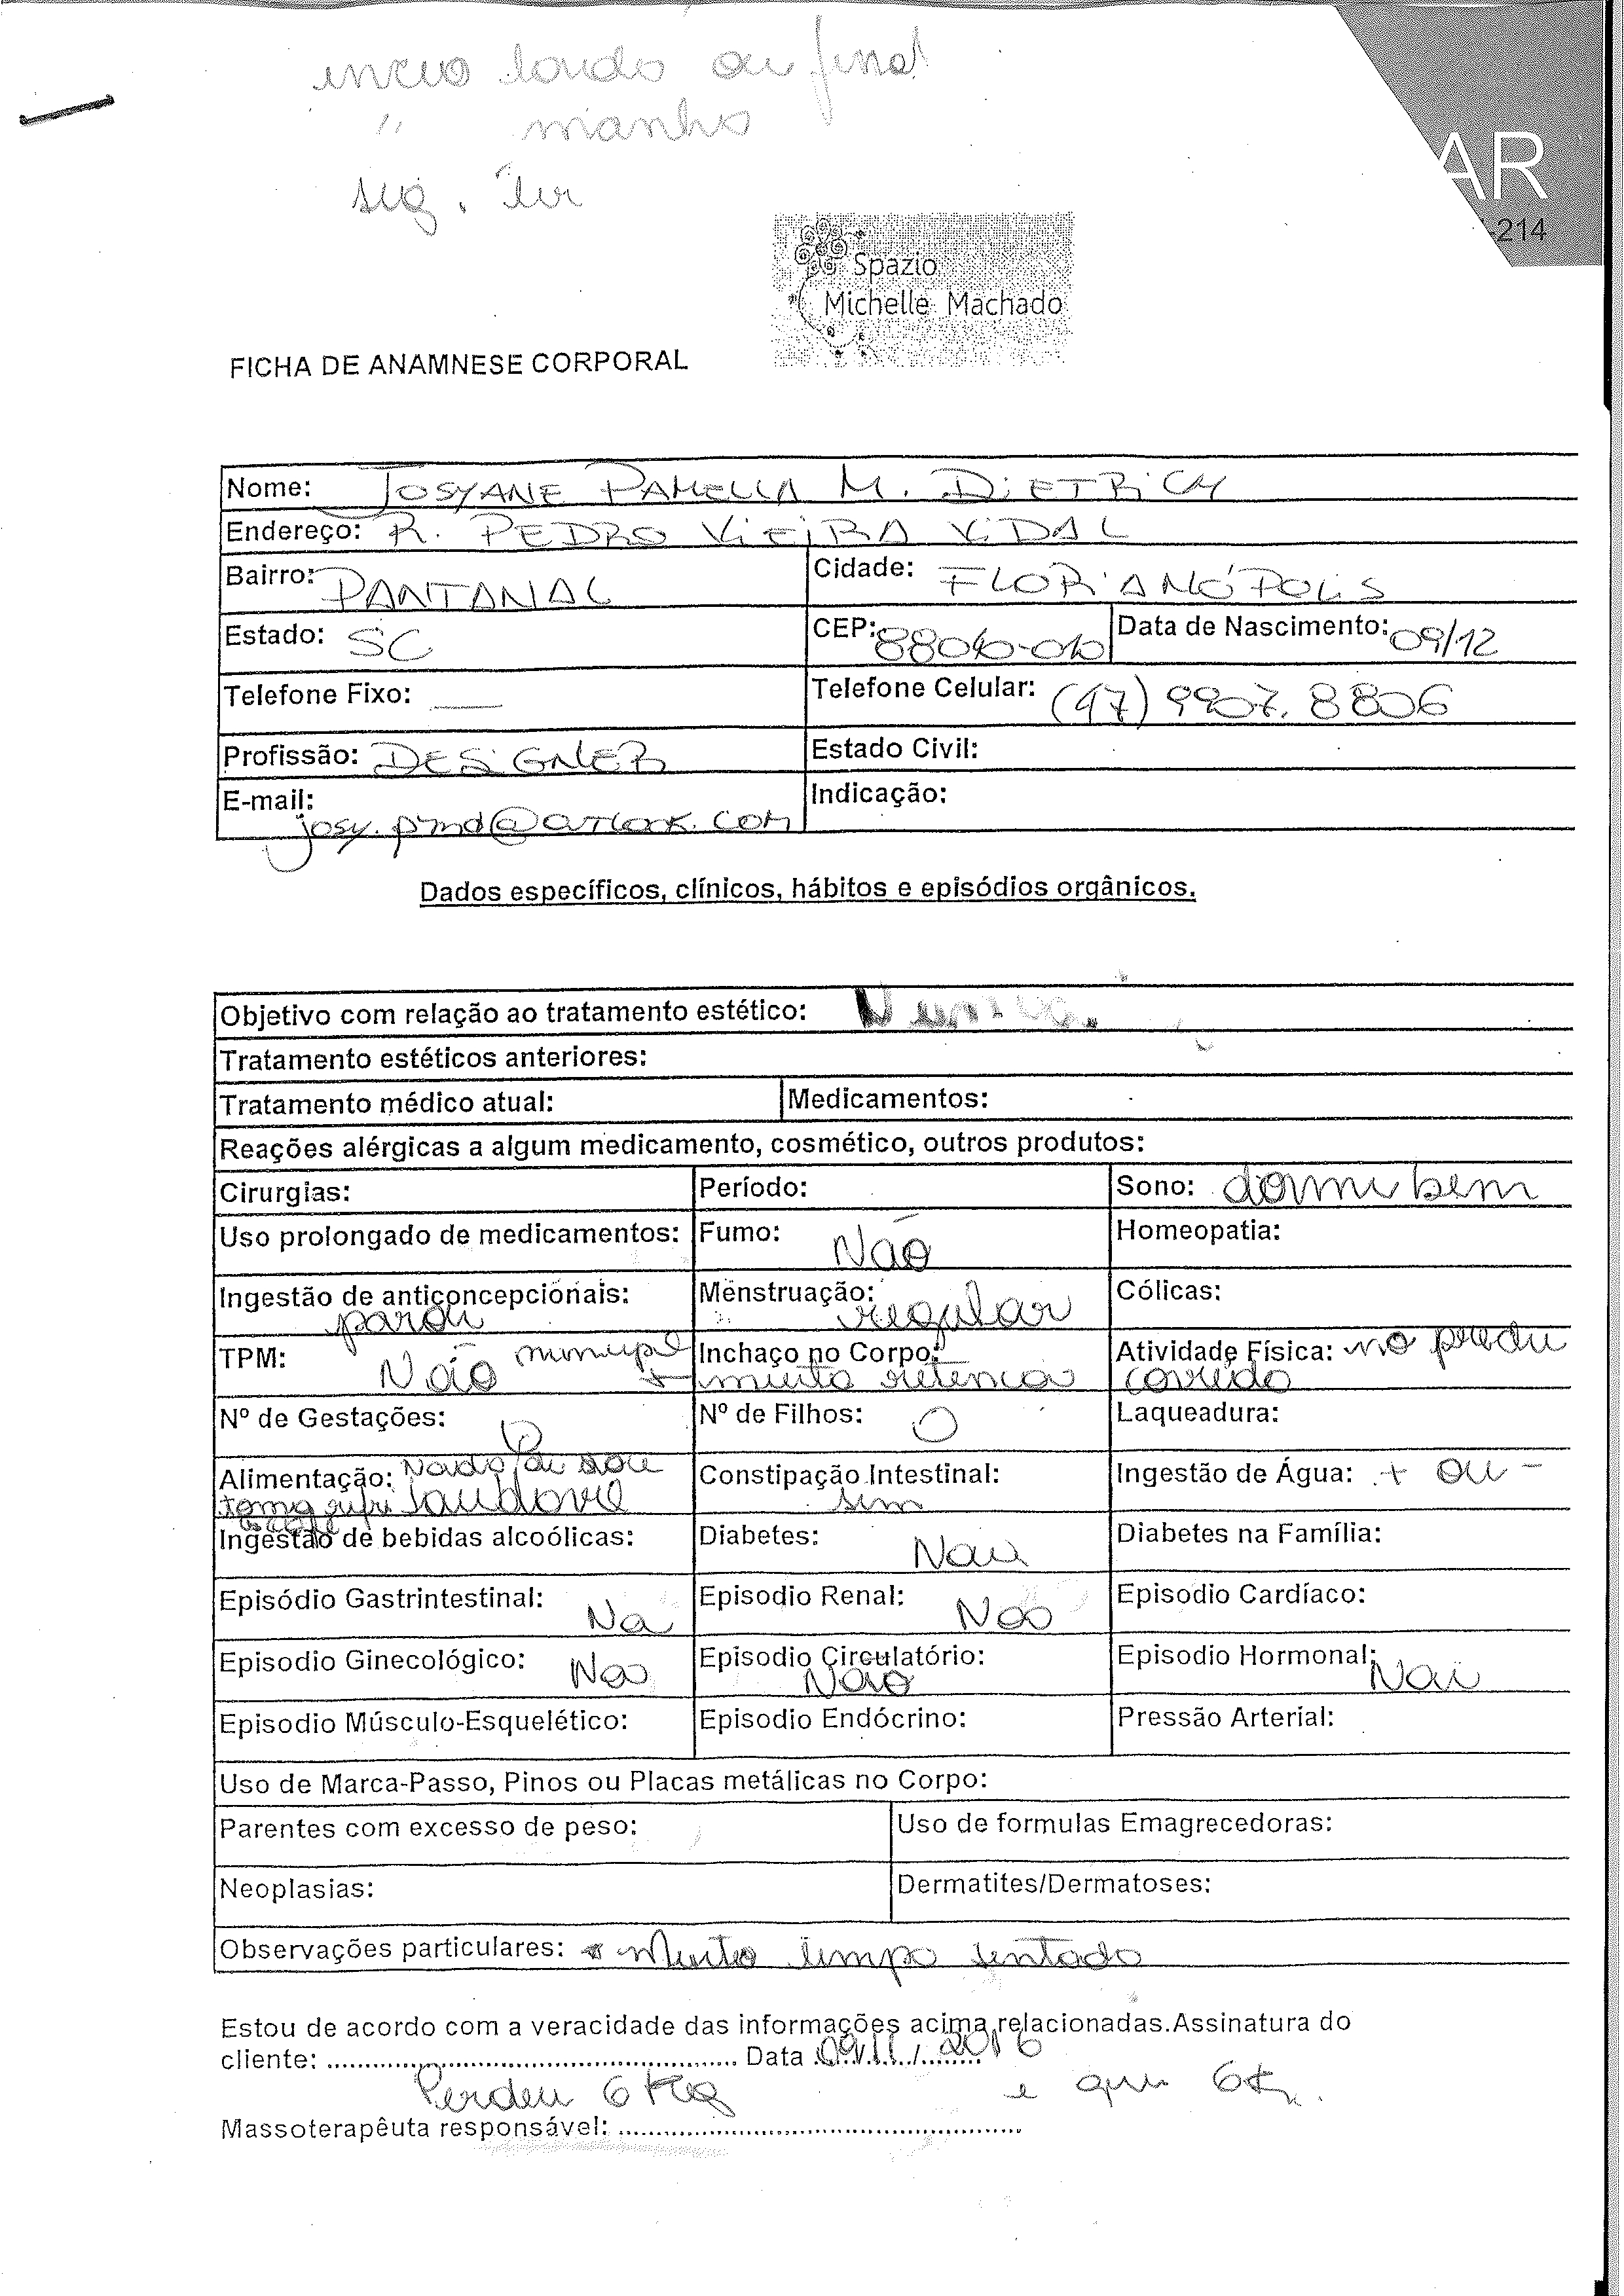 inicio tarde ou final
" manha
seg. Ter
AR
-214
Spazio
Michelle Machado
FICHA DE ANAMNESE CORPORAL
Nome: JOSYANE PAMELLA M. DIETRICH
Endereço: R. PEDRO VIEIRA VIDAL
Bairro: PANTANAL Cidade: FLORIANÓPOLIS
Estado: SC CEP: 88040-010 Data de Nascimento: 09/12
Telefone Fixo: — Telefone Celular: (47) 9907.8806
Profissão: DESIGNER Estado Civil:
E-mail: josy.pmd@outlook.com Indicação:
Dados específicos, clínicos, hábitos e episódios orgânicos.
Objetivo com relação ao tratamento estético:
Tratamento estéticos anteriores:
Tratamento médico atual: Medicamentos:
Reações alérgicas a algum medicamento, cosmético, outros produtos:
Cirurgias: Período: Sono: dormi bem
Uso prolongado de medicamentos: Fumo: Não Homeopatia:
Ingestão de anticoncepcionais: parou Menstruação: regular Cólicas:
TPM: Não Inchaço no Corpo: muita retencao Atividade Física: no predio
corrida
Nº de Gestações: 0 Nº de Filhos: 0 Laqueadura:
Alimentação: saudavel Constipação Intestinal: sim Ingestão de Água: + ou -
Ingestão de bebidas alcoólicas: Diabetes: Nao Diabetes na Família:
Episódio Gastrintestinal: Na Episodio Renal: Nao Episodio Cardíaco:
Episodio Ginecológico: Nao Episodio Circulatório: Nao Episodio Hormonal: Nao
Episodio Músculo-Esquelético: Episodio Endócrino: Pressão Arterial:
Uso de Marca-Passo, Pinos ou Placas metálicas no Corpo:
Parentes com excesso de peso: Uso de formulas Emagrecedoras:
Neoplasias: Dermatites/Dermatoses:
Observações particulares: * Muito tempo sentada
Estou de acordo com a veracidade das informações acima relacionadas.Assinatura do
cliente: ........ Data 09/11/2016
Perdeu 6 Kg e quer 6k.
Massoterapêuta responsável: ........